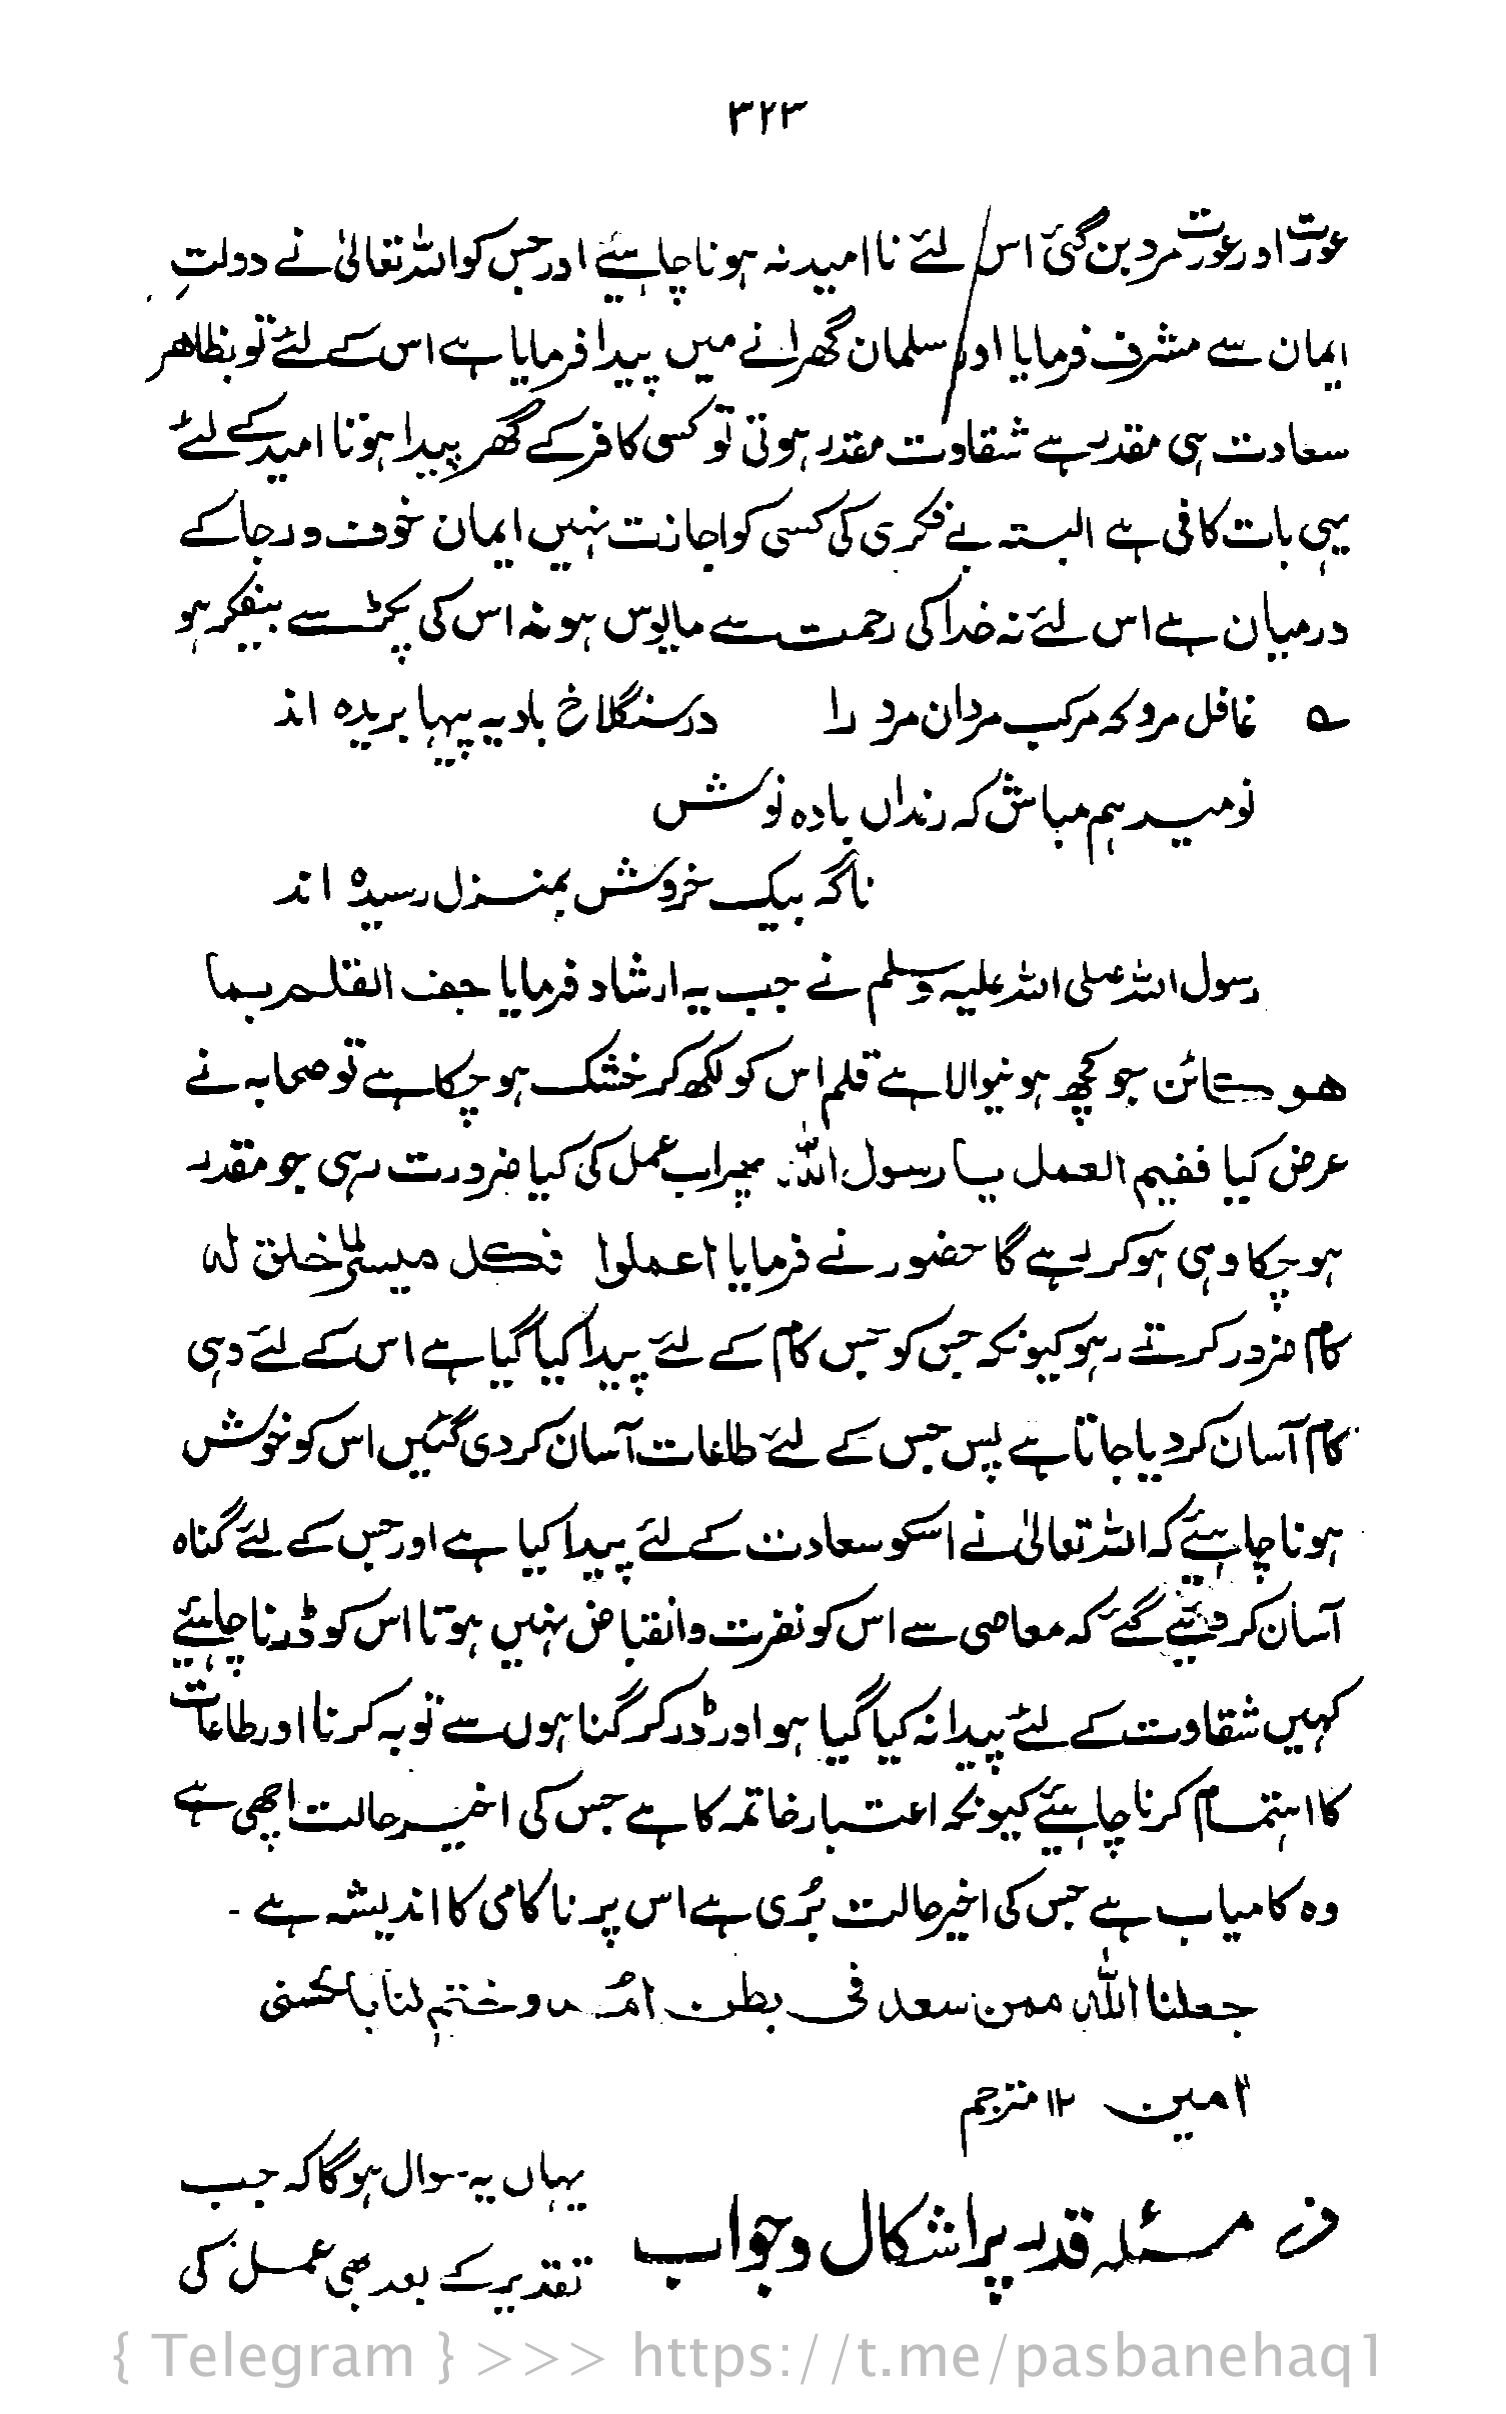 ۳۲۳
عورت اور عورت مرد بن گئی اس لئے نا امید نہ ہونا چاہیئے اور جس کو اللہ تعالیٰ نے دولتِ
ایمان سے مشرف فرمایا اور سلمان گھرانے میں پیدا فرمایا ہے اس کے لئے تو بظاہر
سعادت ہی مقدر ہے شقاوت مقدر ہوتی تو کسی کافر کے گھر پیدا ہوتا امید کے لئے
یہی بات کافی ہے البتہ بے فکری کی کسی کو اجازت نہیں ایمان خوف و رجا کے
درمیان ہے اس لئے نہ خدا کی رحمت سے مایوس ہو نہ اس کی پکڑ سے بیفکر ہو
؎ غافل مرو کہ مرکب مردان مرد را در سنگلاخ بادیہ پیہا بریدہ اند
نومید ہم مباش کہ رنداں بادہ نوش
ناگہ بیک خروش بمنزل رسیدہ اند
رسول اللہ صلی اللہ علیہ وسلم نے جب یہ ارشاد فرمایا جف القلم بما
ھو کائن جو کچھ ہونیوالا ہے قلم اس کو لکھ کر خشک ہو چکا ہے تو صحابہ نے
عرض کیا ففیم العمل یا رسول اللہ پھر اب عمل کی کیا ضرورت رہی جو مقدر
ہو چکا وہی ہو کر رہے گا حضور نے فرمایا اعملوا فکل میسر لما خلق لہ
کام ضرور کرتے رہو کیونکہ جس کو جس کام کے لئے پیدا کیا گیا ہے اس کے لئے وہی
کام آسان کر دیا جاتا ہے پس جس کے لئے طاعات آسان کر دی گئیں اس کو خوش
ہونا چاہیئے کہ اللہ تعالیٰ نے اسکو سعادت کے لئے پیدا کیا ہے اور جس کے لئے گناہ
آسان کر دیئے گئے کہ معاصی سے اس کو نفرت و انقباض نہیں ہوتا اس کو ڈرنا چاہیئے
کہیں شقاوت کے لئے پیدا نہ کیا گیا ہو اور ڈر کر گناہوں سے توبہ کرنا اور طاعات
کا اہتمام کرنا چاہیئے کیونکہ اعتبار خاتمہ کا ہے جس کی اخیر حالت اچھی ہے
وہ کامیاب ہے جس کی اخیر حالت بُری ہے اس پر ناکامی کا اندیشہ ہے ۔
جعلنا اللہ ممن سعد فی بطن امہ وختم لنا بالحسنی
آمین ۱۲ مترجم
ف مسئلہ قدر پر اشکال و جواب یہاں یہ سوال ہوگا کہ جب
تقدیر کے بعد بھی عمل کی
{ Telegram } >>> https://t.me/pasbanehaq1